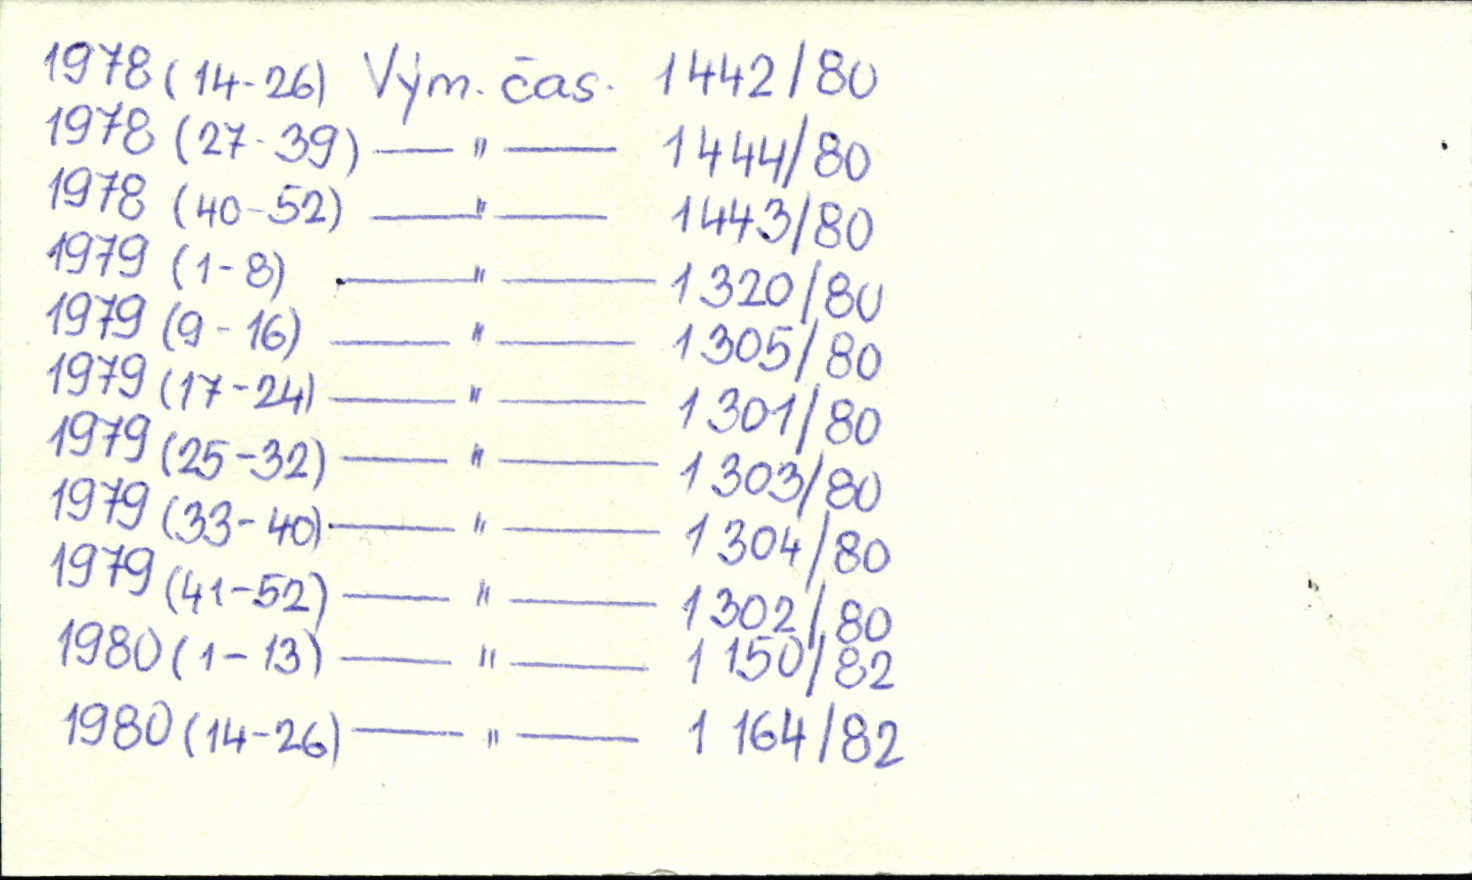 1978 (14-26) Vým. čas. 1442/80
1978 (27-39) — " — 1444/80
1978 (40-52) — " — 1443/80
1979 (1-8) — " — 1320/80
1979 (9-16) — " — 1305/80
1979 (17-24) — " — 1301/80
1979 (25-32) — " — 1303/80
1979 (33-40) — " — 1304/80
1979 (41-52) — " — 1302/80
1980 (1-13) — " — 1150/82
1980 (14-26) — " — 1164/82